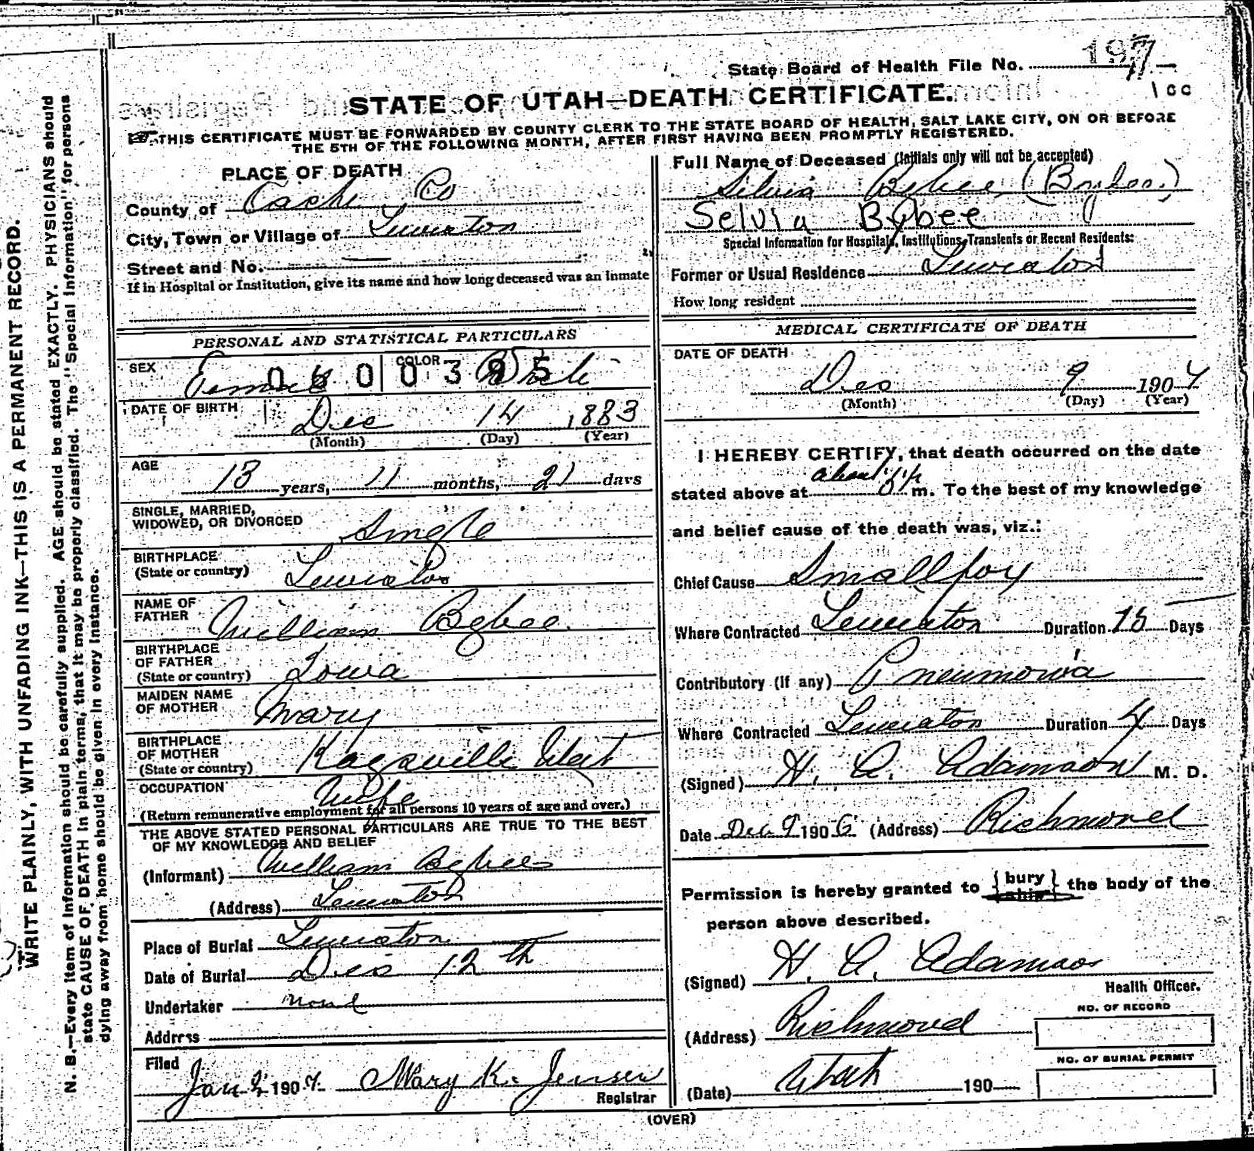 State Board of Health File No. 197
100
STATE OF UTAH—DEATH CERTIFICATE.
THIS CERTIFICATE MUST BE FORWARDED BY COUNTY CLERK TO THE STATE BOARD OF HEALTH, SALT LAKE CITY, ON OR BEFORE
THE 5TH OF THE FOLLOWING MONTH, AFTER FIRST HAVING BEEN PROMPTLY REGISTERED.
WRITE PLAINLY, WITH UNFADING INK—THIS IS A PERMANENT RECORD.
N. B.—Every item of information should be carefully supplied. AGE should be stated EXACTLY. PHYSICIANS should
state CAUSE OF DEATH in plain terms, that it may be properly classified. The "Special Information" for persons
dying away from home should be given in every instance.
PLACE OF DEATH
County of Cache Co
City, Town or Village of Lewiston
Street and No.
If in Hospital or Institution, give its name and how long deceased was an inmate
PERSONAL AND STATISTICAL PARTICULARS
SEX Female COLOR White
0600395
DATE OF BIRTH Dec 14 1883
(Month) (Day) (Year)
AGE
13 years, 11 months, 21 days
SINGLE, MARRIED,
WIDOWED, OR DIVORCED Single
BIRTHPLACE
(State or country) Lewiston
NAME OF
FATHER William Bybee
BIRTHPLACE
OF FATHER
(State or country) Iowa
MAIDEN NAME
OF MOTHER Mary
BIRTHPLACE
OF MOTHER
(State or country) Kaysville Utah
OCCUPATION
(Return remunerative employment for all persons 10 years of age and over.)
THE ABOVE STATED PERSONAL PARTICULARS ARE TRUE TO THE BEST
OF MY KNOWLEDGE AND BELIEF
(Informant) William Bybee
(Address) Lewiston
Place of Burial Lewiston
Date of Burial Dec 12th
Undertaker none
Address
Filed
Jan 2 1907 Mary K. Jensen
Registrar
Full Name of Deceased (Initials only will not be accepted)
Silvia Bybee (Bybee)
Selvia Bybee
Special Information for Hospitals, Institutions, Transients or Recent Residents:
Former or Usual Residence Lewiston
How long resident
MEDICAL CERTIFICATE OF DEATH
DATE OF DEATH
Dec 9 190
(Month) (Day) (Year)
I HEREBY CERTIFY, that death occurred on the date
stated above at about m. To the best of my knowledge
and belief cause of the death was, viz.:
Chief Cause Smallpox
Where Contracted Lewiston Duration 15 Days
Contributory (If any) Pneumonia
Where Contracted Lewiston Duration 4 Days
(Signed) H. A. Adamson M. D.
Date Dec 9 1906 (Address) Richmond
Permission is hereby granted to {bury ship} the body of the
person above described.
(Signed) H. A. Adamson
Health Officer.
(Address) Richmond
NO. OF RECORD
NO. OF BURIAL PERMIT
(Date) Utah 190
(OVER)